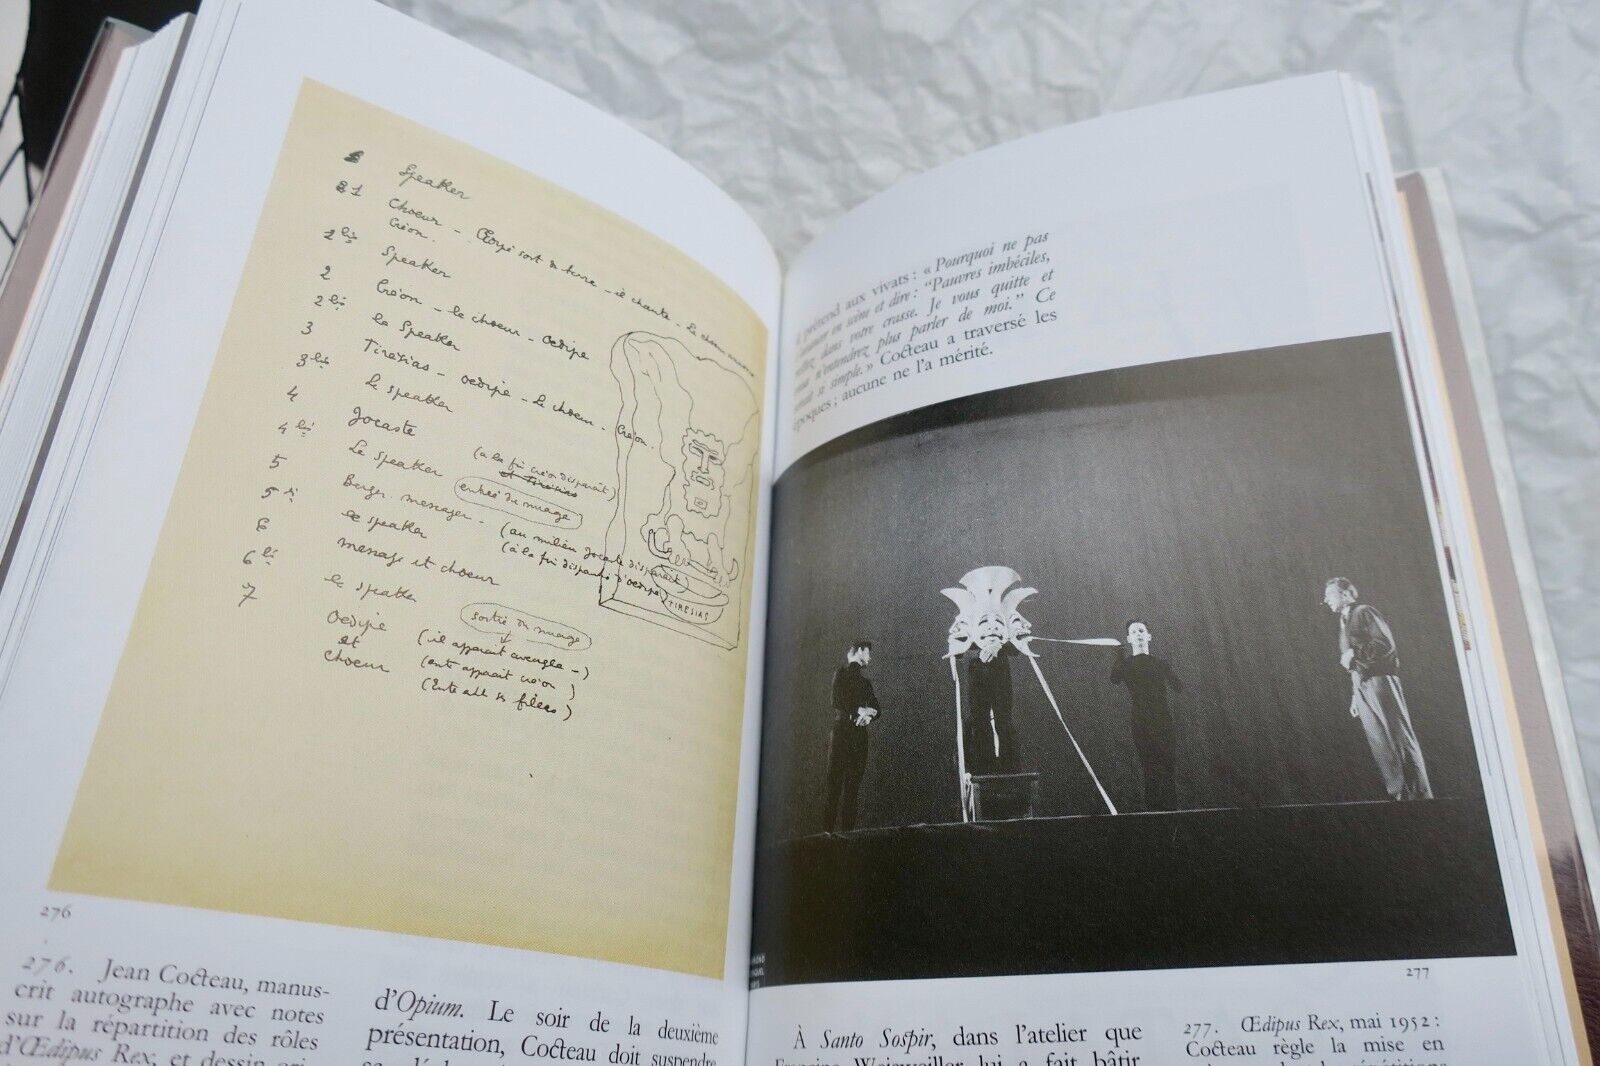 Speaker
1 Choeur _ Œdipe sort de terre _ il chante _ Le choeur
Créon.
2 bis Speaker
2 Créon _ le choeur _ Oedipe
2 bis le Speaker
3 Tirésias _ Oedipe _ Le choeur _ Créon.
3 bis Le speaker
4 Jocaste
(à la fin créon disparaît)
et Tirésias
4 bis Le speaker
entrée du nuage
5 Berger. messager _ (au milieu Jocaste disparaît)
(à la fin disparaît d'oedipe)
5 bis le speaker
6 message et choeur
6 bis le speaker
sortie du nuage
7 Oedipe (il apparaît aveugle _)
et (ent. apparaît créon)
choeur (Entre all ses filles)
TIRESIAS
276
276. Jean Cocteau, manus-
crit autographe avec notes
sur la répartition des rôles
d'Œdipus Rex, et dessin
d'Opium. Le soir de la deuxième
présentation, Cocteau doit suspendre
prétend aux vivats : « Pourquoi ne pas
en scène et dire : "Pauvres imbéciles,
dans votre crasse. Je vous quitte et
n'entendrez plus parler de moi." Ce
si simple. » Cocteau a traversé les
époques ; aucune ne l'a mérité.
277
À Santo Sospir, dans l'atelier que
Francine Weisweiller lui a fait bâtir
277. Œdipus Rex, mai 1952 :
Cocteau règle la mise en